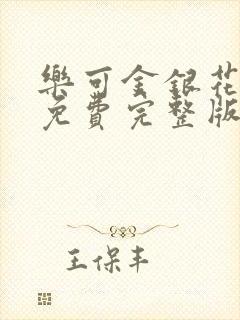 樂可金銀花
免費完整版
王保丰